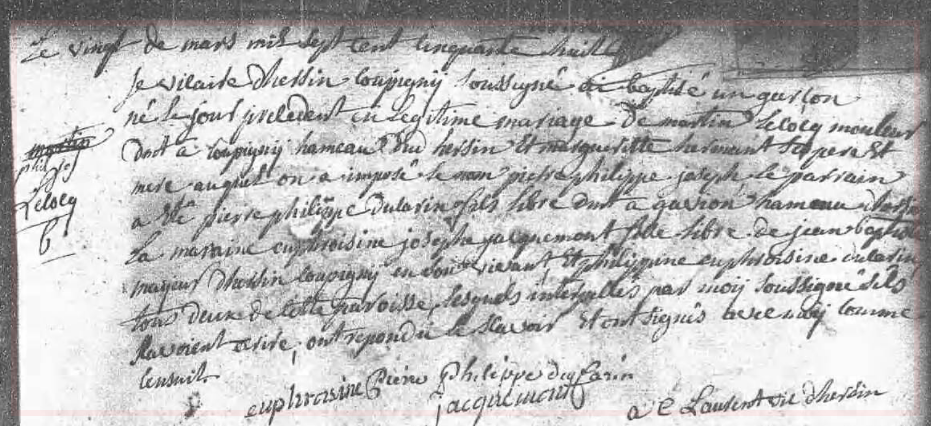 Le vingt de mars mil sept cent cinquante huit
Je vicaire dhersin coupigny soussigné ai baptisé un garcon
né le jour precedent en legitime mariage De martin Lecocq mouleur
dmt a coupigny hameau dud hersin Et margueritte hermant Ses pere Et
mere auquel on a imposé le nom pierre philippe joseph le parrain
a Eté pierre philippe dularin fils libre dmt a gavion hameau dhersin
La maraine euphroisine josephe jacquemont fille libre de jean baptiste
mayeur dhersin coupigny en son vivant, Et philippine euphroisine dularin
tous deux de cette paroisse, lesquels interpellés par moy soussigné sils
scavoient ecrire, ont repondu le scavoir Et ont signés avec moy comme
sensuit
martin
phil jos
Lecocq
b
euphroisine Piere Philippe du larin
jacquemont
a C Laurent vic dhersin